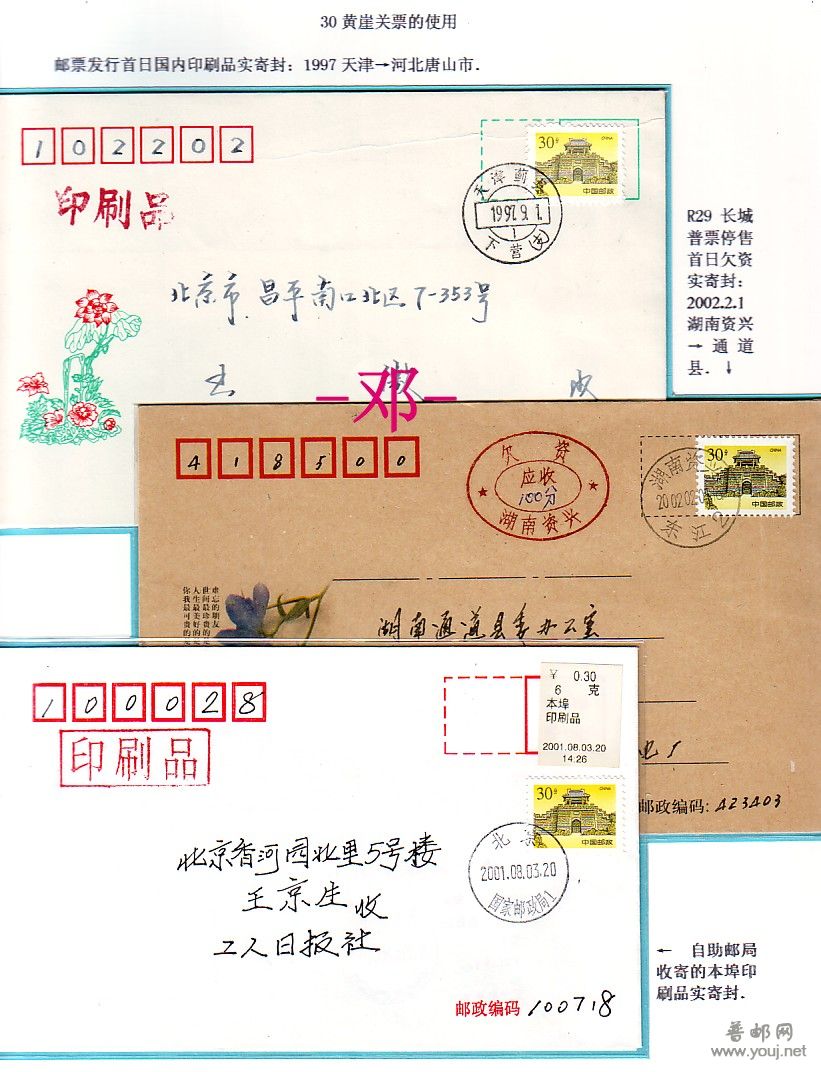 30 黄崖关票的使用
邮票发行首日国内印刷品实寄封：1997 天津→河北唐山市.
102202
印刷品
30分
CHINA
中国邮政
天津蓟
1997.9.1.
1
下营(支)
北京市.昌平南口北区7-353号
-邓-
R29 长城
普票停售
首日欠资
实寄封：
2002.2.1
湖南资兴
→ 通 道
县. ↓
418500
欠 资
应收
100分
湖南资兴
30分
CHINA
中国邮政
湖南资兴
难忘的朋友
世间最珍贵的是
人生最美好的
你我最可贵的是
湖南通道县委办公室
邮政编码: 423403
100028
印刷品
¥ 0.30
6 克
本埠
印刷品
2001.08.03.20
14:26
30分
CHINA
中国邮政
北京
2001.08.03.20
国家邮政局1
北京香河园北里5号楼
王京生 收
工人日报社
邮政编码 100718
← 自助邮局
收寄的本埠印
刷品实寄封.
普邮网
www.youj.net